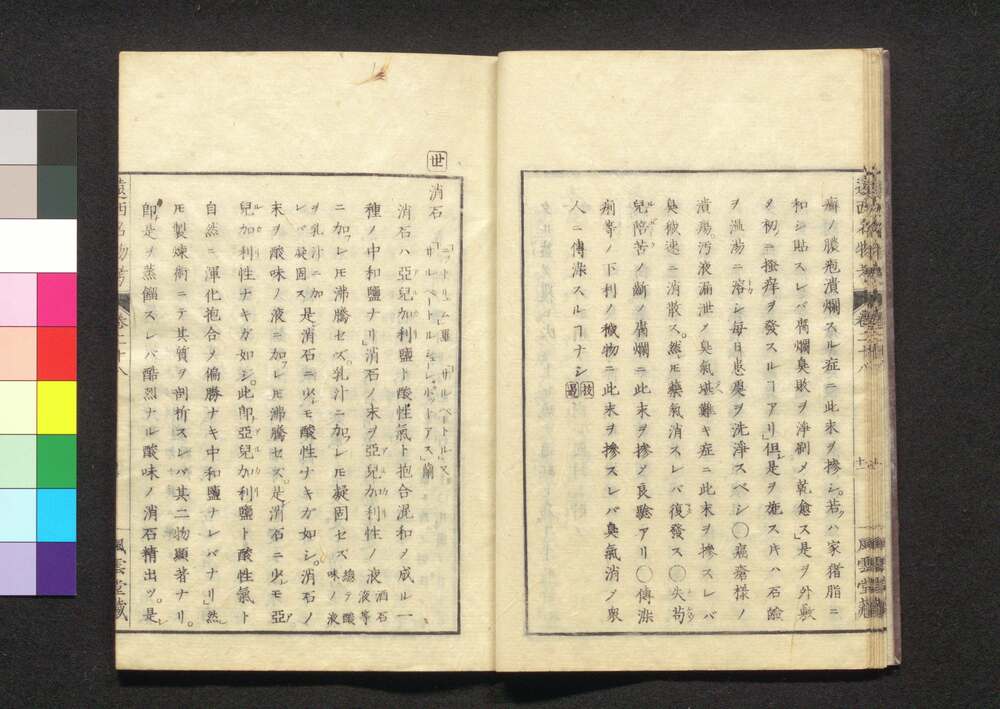 癬ノ膿疱潰爛スル症ニ此末ヲ摻シ。若クハ家猪脂ニ
和シ貼スレバ腐爛臭敗ヲ淨刷メ乾愈ス」是ヲ外敷
ヲ初ニ搔痒ヲ發スルヿアリ」但シ是ヲ施スキハ石鹼
ヲ温湯ニ溶シ毎日患處ヲ洗淨スベシ〇癌瘡様ノ
潰瘍汚液漏泄ノ臭氣堪難キ症ニ此末ヲ摻スレバ
臭敗速ニ消散ス。然レ𪜈藥氣消スレバ復發ス〇失苟
兒陪苦ノ齗ノ腐爛ニ此末ヲ摻メ良驗アリ〇傳染
痢等ノ下利ノ穢物ニ此末ヲ摻スレバ臭氣消メ衆
人ニ傳染スルヿナシ
世
消石
「ニットリュム」羅「サルペートル」又
「サルペートルシューレポットアス」蘭
消石ハ亞兒加利鹽ト酸性氣ト抱合混和メ成ル一
種ノ中和鹽ナリ」消石ノ末ヲ亞兒加利性ノ液 酒石液等
ニ加フレ𪜈沸騰セズ乳汁ニ加フレ𪜈凝固セズ 總テ酸味ノ液
ヲ乳汁ニ加フレバ凝固ス 是消石ニ少シモ酸性ナキガ如シ。消石ノ
末ヲ酸味ノ液ニ加フレ𪜈沸騰セズ。是消石ニ少シモ亞
兒加利性ナキガ如シ。此卽亞兒加利鹽ト酸性氣ト
自然ニ渾化抱合メ偏勝ナキ中和鹽ナレバナリ」然レ
𪜈製煉術ニテ其質ヲ剖析スレバ其二物顯著ナリ。
卽是ヲ蒸餾スレバ酷烈ナル酸味ノ消石精出ヅ。是レ
遠西名物考
卷二十八
風雲堂藏